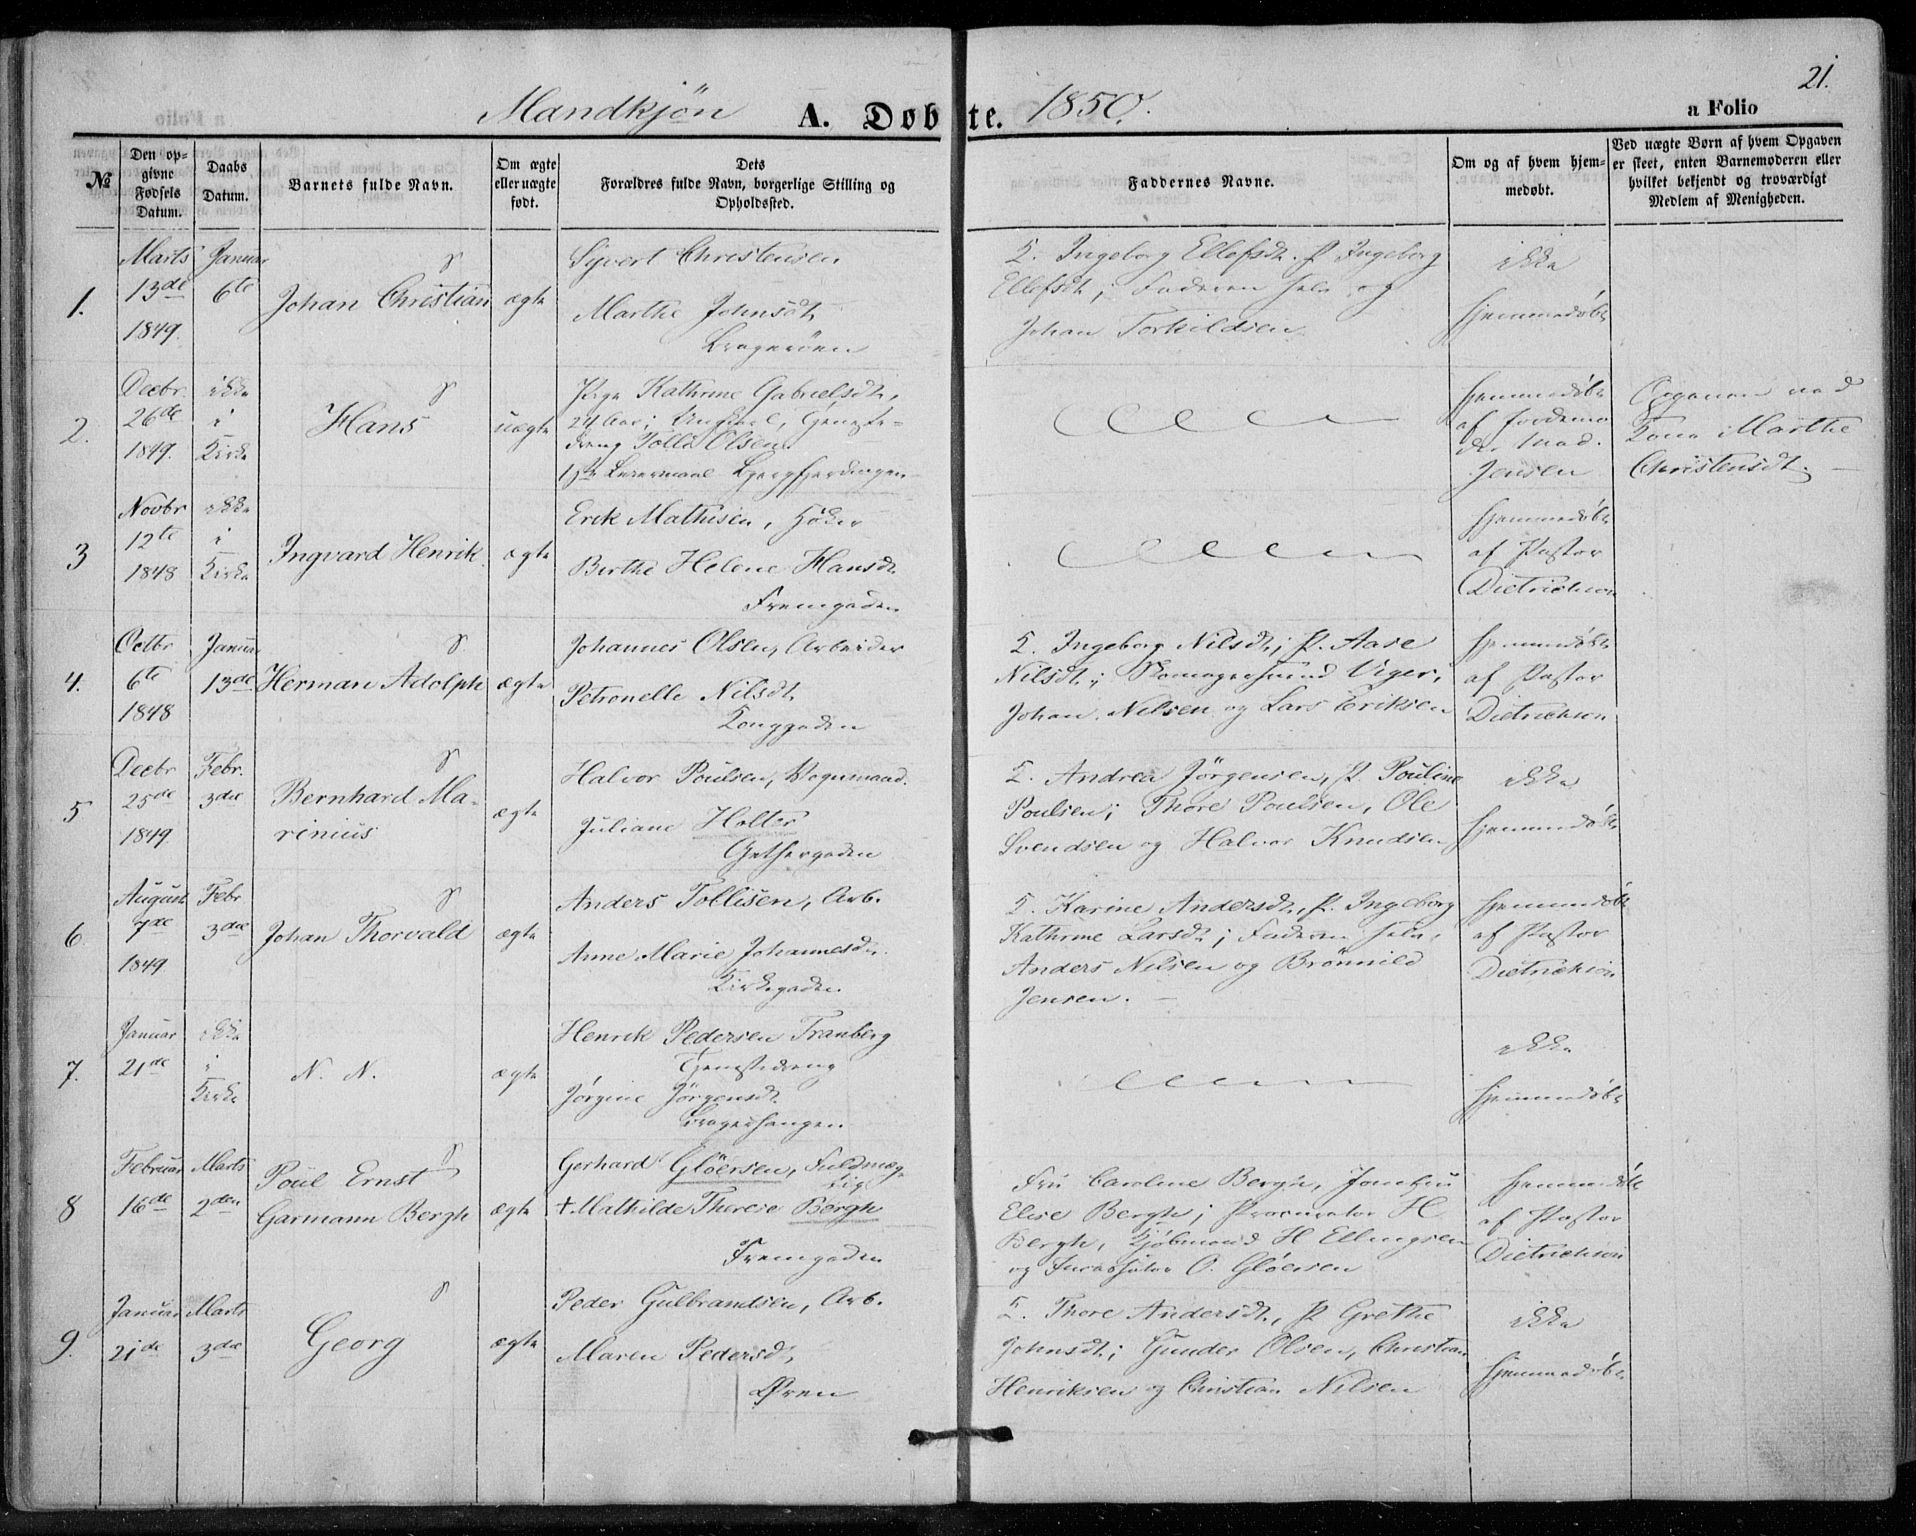 21.
Mandkjön A. Døbte. 1850. a Folio
№
Den op-
givne
Fødsels
Datum.
Daabs
Datum.
Barnets fulde Navn.
Om ægte
eller uægte
født.
Dets
Forældres fulde Navn, borgerlige Stilling og
Opholdssted.
Faddernes Navne.
Om og af hvem hjem-
medøbt.
Ved uægte Børn af hvem Opgaven
er skeet, enten Barnemoderen eller
hvilket bekjendt og troværdigt
Medlem af Menigheden.
1.
Marts
13de
1849.
Januar
6te
Johan Christian
ægte
Syvert Christensen
Marthe Johnsdt.
Bragerøen
K. Ingeborg Ellefsdt. P. Ingeborg
Ellefsdt; Faderen selv og
Johan Torkildsen
ikke
hjemmedøbt
2.
Decbr.
26de
1849.
ikke
i
Kirke
Hans
uægte
Pige Kathrine Gabrielsdt,
24 Aar; Ungkarl, Tjeneste-
dreng Tolle Olsen
1ste Leiermaal
hjemmedøbt
af Jordemo
der Mad.
Jensen
Opgaven ved
Kone Marthe
Christensdt.
3
Novbr
12te
1848
ikke
i
Kirke
Ingvard Henrik.
ægte
Erik Mathisen, Høker
Berthe Helene Hansdt.
Fremgaden
hjemmedøbt
af Pastor
Dietrichson
4.
Octbr
6te
1848
Januar
13de
Herman Adolph
ægte
Johannes Olsen, Arbeider
Petronelle Nilsdt.
Konggaden
K. Ingeborg Nilsdt; P. Aase
Nilsdt; Skomagersvend Viger,
Johan Nelsen og Lars Eriksen
hjemmedøbt
af Pastor
Dietrichson
5
Decbr
25de
1849.
Febr.
3die
Bernhard Ma-
rinius
ægte
Halvor Poulsen, Vognmand.
Juliane Holter
Gethergaden
K. Andrea Jörgensen, P. Pouline
Poulsen; Thore Poulsen, Ole
Svendsen og Halvor Knudsen
ikke
hjemmedøbt
6
August
7de
1849
Febr
3die
Johan Thorvald
ægte
Anders Tollisen, Arb.
Anne Marie Johannesdt.
Kirkegaden
K. Karine Andersdt, P. Ingeborg
Kathrine Larsdt; Faderen selv,
Anders Nilsen og Brönnild
Jensen.
hjemmedøbt
af Pastor
Dietrichson
7.
Januar
21de
ikke
i
Kirke
N. N.
ægte
Henrik Pedersen Tranberg
Tjenestedreng
Jörgine Jörgensdt.
Brageshaugen
ikke
hjemmedøbt
8
Februar
16de
Marts
2den
Poul Ernst
Garmann Bergh
ægte
Gerhard Glöersen, Fuldmæg-
tig
+ Mathilde Therese Bergh
Fremgaden
Fru Caroline Bergh, Jomfru
Elise Bergh; Procurator H
Bergh, Kjöbmand H Ellingsen
og O. Glöersen
hjemmedøbt
af Pastor
Dietrichson
9.
Januar
21de
Marts
3die
Georg
ægte
Peder Gulbrandsen, Arb.
Maren Pedersdt,
Øren
K. Thore Andersdt., P Grethe
Johnsdt; Gunder Olsen, Christian
Henriksen og Christian Nilsen
ikke
hjemmedøbt